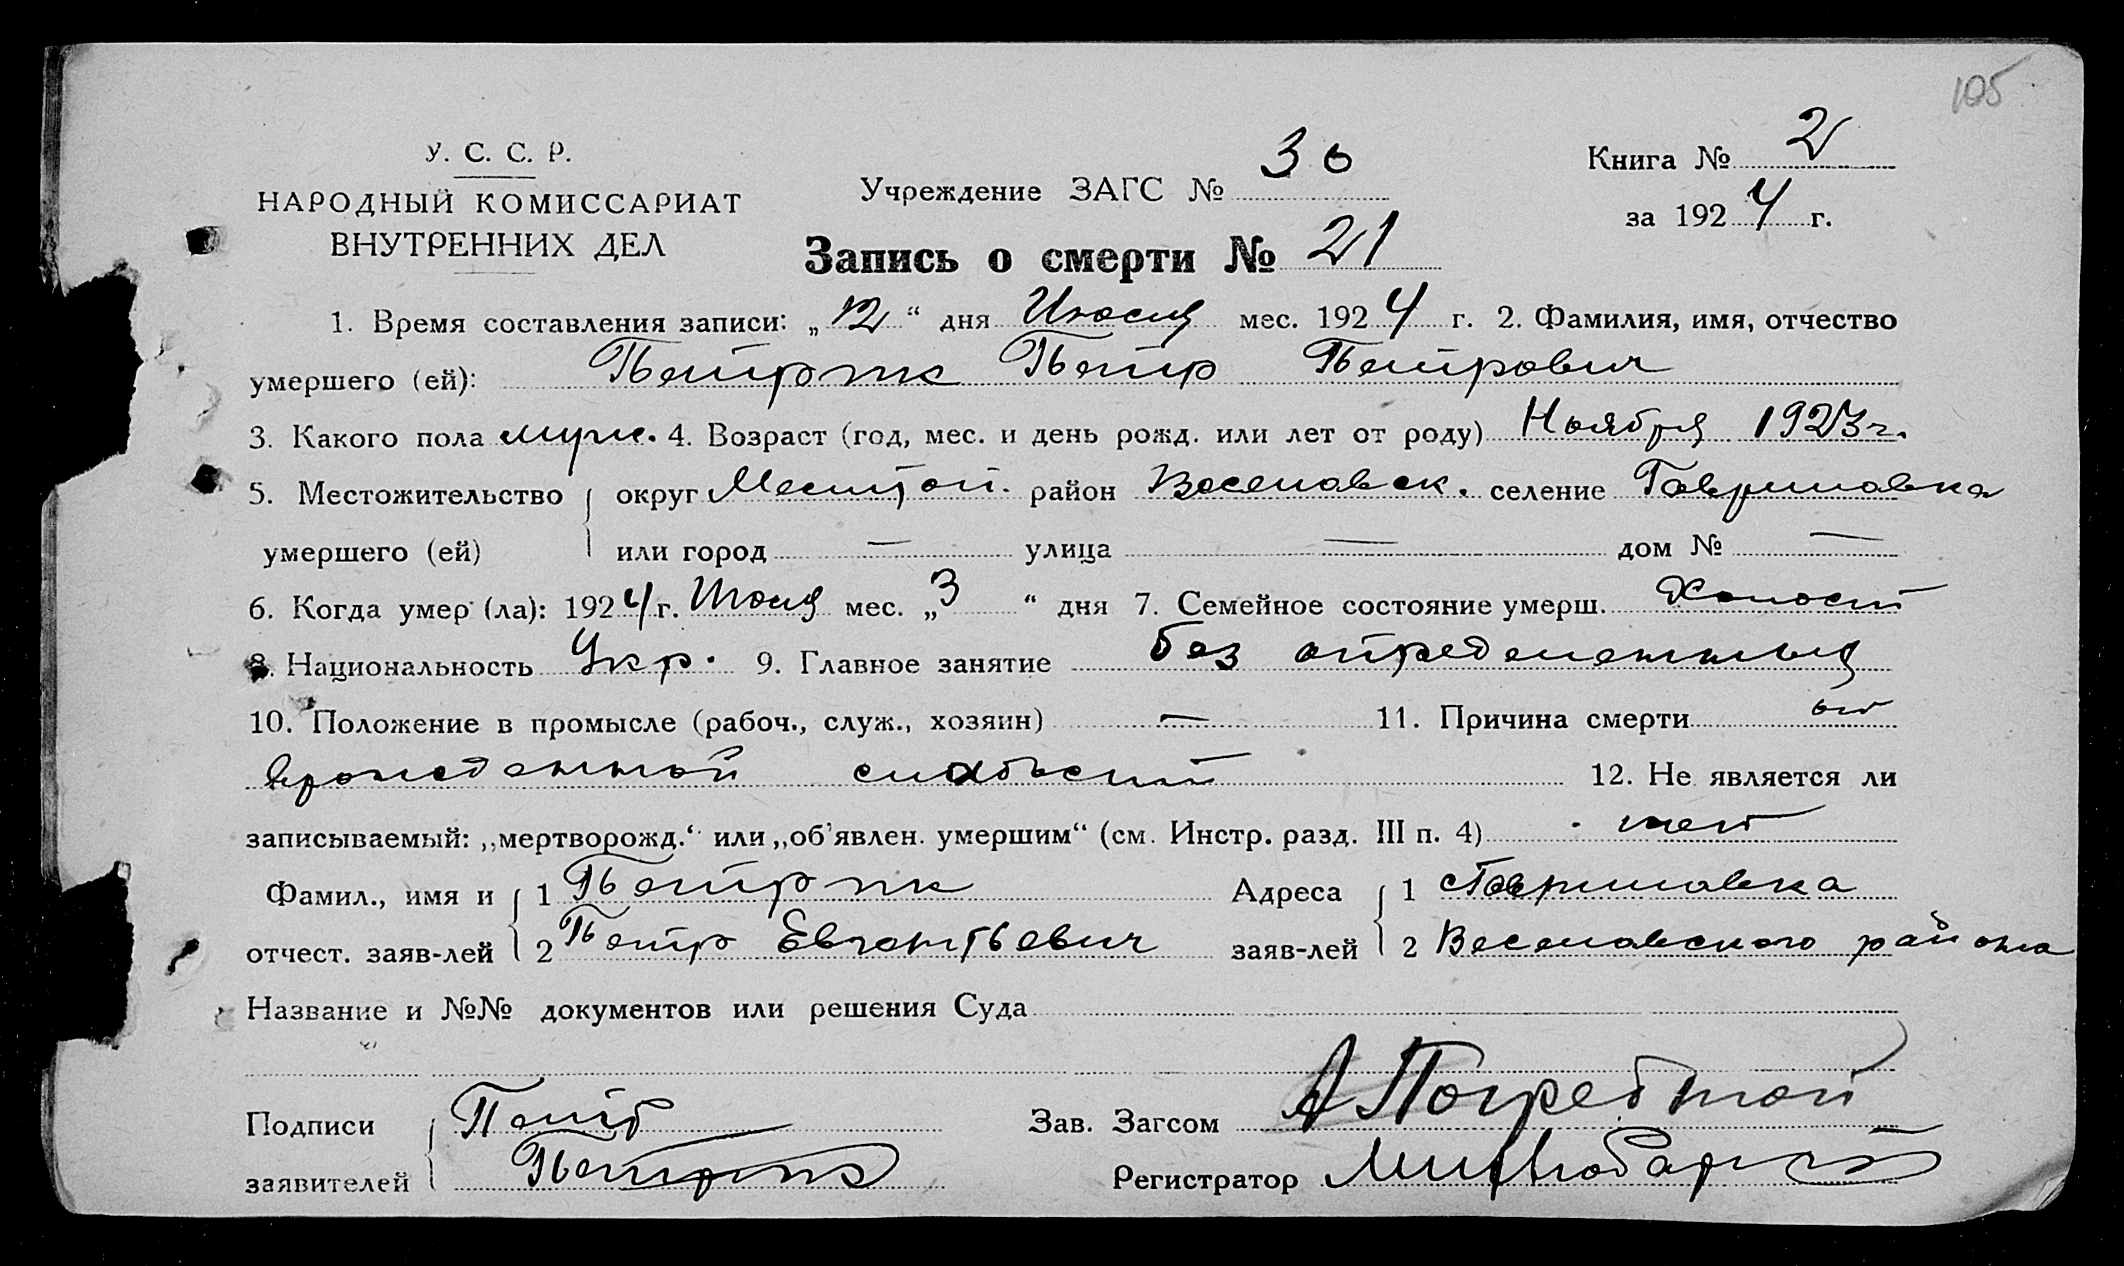 105
У. С. С. Р.
НАРОДНЫЙ КОМИССАРИАТ
ВНУТРЕННИХ ДЕЛ
Учреждение ЗАГС № 30
Книга № 2
за 1924 г.
Запись о смерти № 21
1. Время составления записи: „12“ дня Июля мес. 1924 г. 2. Фамилия, имя, отчество
умершего (ей): Петр Петрович
3. Какого пола муж. 4. Возраст (год, мес. и день рожд. или лет от роду) Ноября 1923 г.
5. Местожительство округ район Веселовск. селение Гавришовка
умершего (ей) или город — улица — дом № —
6. Когда умер (ла): 1924 г. Июля мес. „3“ дня 7. Семейное состояние умерш. Холост
8. Национальность Укр. 9. Главное занятие без определенных
10. Положение в промысле (рабоч., служ., хозяин) — 11. Причина смерти от
врожденной слабости 12. Не является ли
записываемый: „мертворожд.“ или „об'явлен. умершим“ (см. Инстр. разд. III п. 4) нет
Фамил., имя и 1 Адреса 1 Гавришовка
отчест. заяв-лей 2 Петр заяв-лей 2 Веселовского района
Название и №№ документов или решения Суда
Подписи Петр Зав. Загсом А Погребной
заявителей Регистратор